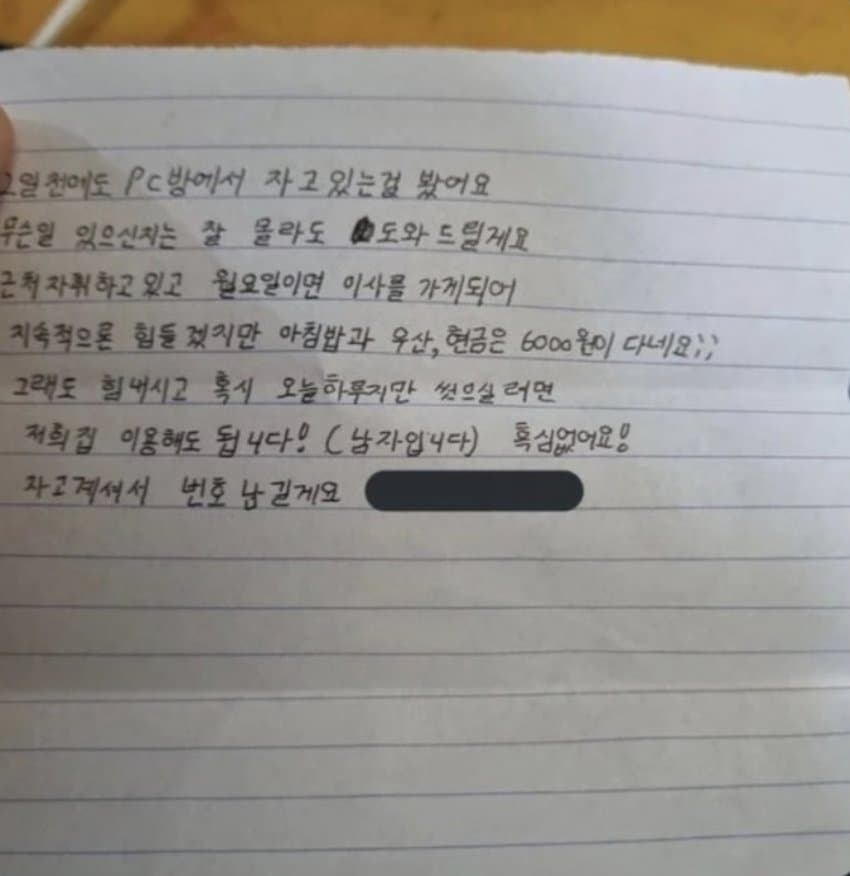 2일전에도 PC방에서 자고있는걸 봤어요
무슨일 있으신지는 잘 몰라도 도와드릴게요
근처자취하고있고 월요일이면 이사를 가게되어
지속적으론 힘들겠지만 아침밥과 우산, 현금은 6000원이 다네요;;
그래도 힘내시고 혹시 오늘하루지만 씻으실러면
저희집 이용해도 됩니다! (남자입니다) 흑심없어요!
자고계셔서 번호남길게요